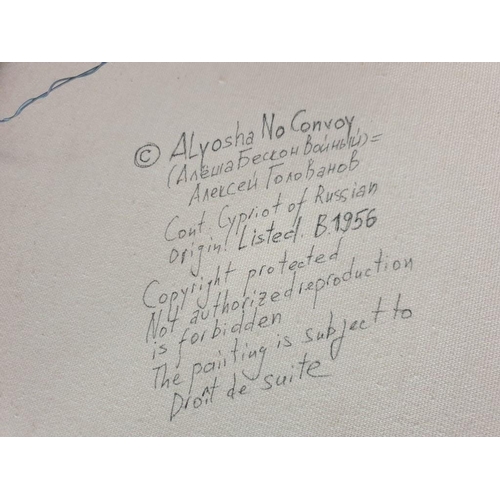 © ALyosha No Convoy
(Алёша Бесконвойный)=
Алексей Голованов
Cont. Cypriot of Russian
origin. Listed. B.1956
Copyright protected
Not authorized reproduction
is forbidden
The painting is subject to
Droît de suite